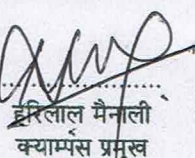 हरिलाल मैनाली
क्याम्पस प्रमुख